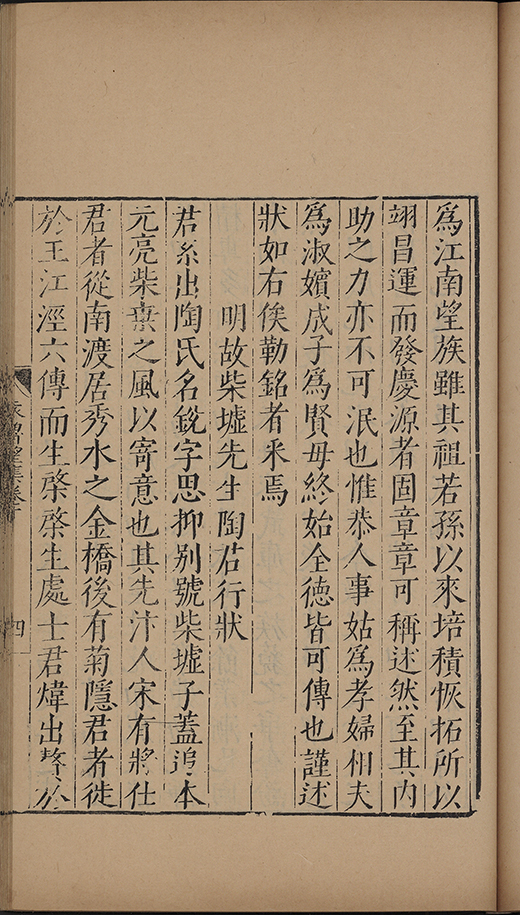 為江南望族雖其祖若孫以來培積恢拓所以
翊昌運而發慶源者固章章可稱述然至其内
助之力亦不可泯也惟恭人事姑為孝婦相夫
為淑嬪成子為賢母終始全德皆可傳也謹述
狀如右俟勒銘者釆焉
明故柴墟先生陶君行狀
君系出陶氏名銳字思抑别號柴墟子蓋追本
元亮柴桒之風以寄意也其先汴人宋有將仕
君者從南渡居秀水之金橋後有菊隱君者徙
於王江涇六傳而生棨棨生處士君煒出嫠於
四